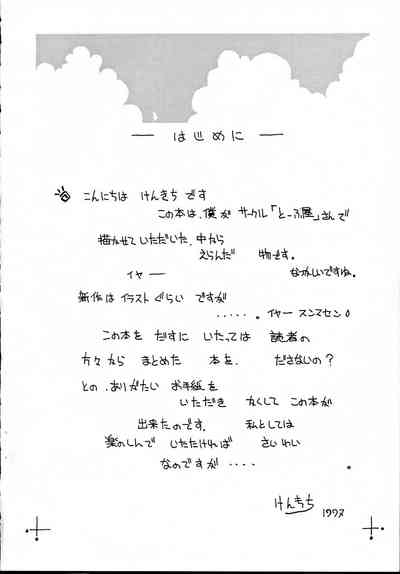 ― はじめに ―
こんにちは けんきち です
この本は、僕が サークル「とーふ屋」さんで
描かせていただいた、中から
えらんだ 物です。
イヤー なつかしいですね。
新作は イラスト ぐらい ですが
・・・・・。イヤー スンマセン。
この本を だすに いたっては 読者の
方々から まとめた 本を、 ださないの?
との、ありがたい お手紙を
いただき かくして この本が
出来たのです。 私としては
楽のしんで いたたければ さいわい
なのですが ・・・・
けんきち